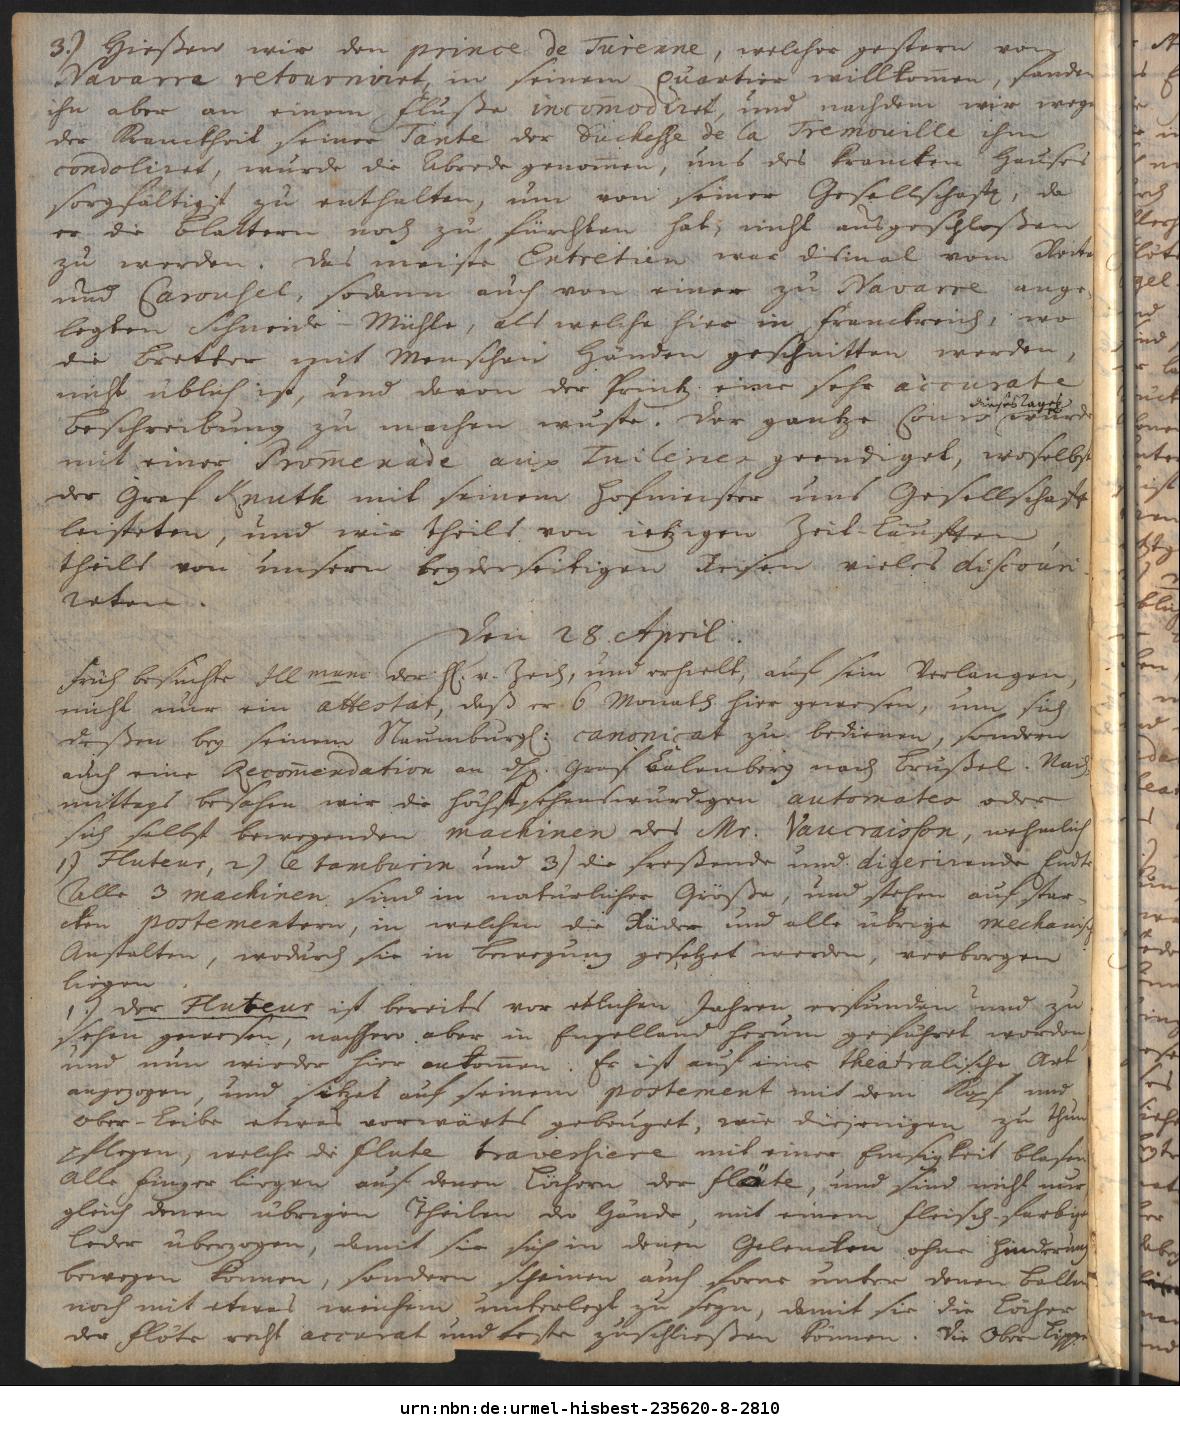 3.) Hießen wir den prince de Turenne, welcher gestern von
Navarra retourniret, in seinem Quartier willkom̄en, fanden
ihn aber an einem Fluße incom̄odiret, und nachdem wir wege
der Kranckheit seiner Tante der Duchesse de la Tremouille ihm
condoliret, wurde die Abrede genom̄en, uns des krancken Hauses
sorgfältigst zu enthalten, um von seiner Gesellschafft, da
er die Blattern noch zu fürchten hat, nicht ausgeschloßen
zu werden. Das meiste Entretien war dismal vom Reiten
und Carousel, sodann auch von einer zu Navarre ange-
legten Schneide-Mühle, als welche hier in Franckreich, wo
die Bretter mit Menschen Händen geschnitten werden,
nicht üblich ist, und davon der Printz eine sehr accurate
Beschreibung zu machen wuste. Der gantze Cours dieses Tages wurde
mit einer Prom̄enade aux Tuileries geendiget, woselbst
der Graf Knuth mit seinem Hofmeister uns Gesellschafft
leisteten, und wir theils von ietzigen Zeit-Läufften,
theils von unsern beyderseitigen Reisen vieles discouri-
reten.
Den 28. April.
Früh besuchte Ill mum der H. v. Zech, und erhielt, auf sein Verlangen,
nicht nur ein attestat, daß er 6 Monath hier gewesen, um sich
deßen bey seinem Naumburgl: canonicat zu bedienen, sondern
auch eine Recom̄endation an Graf Calenberg nach Brüßel. Nach-
mittags besahen wir die höchstsehenswürdigen automates oder
sich selbst bewegenden machinen des Mr. Vaucraisson, nehmlich
1) Fluteur, 2) le tamburin und 3) die freßende und digerirende Endte
Alle 3 machinen sind in natürlicher Größe, und stehen auf star-
cken postementern, in welchen die Räder und alle übrige mechanisch
Anstalten, wodurch sie in Bewegung gesetzet werden, verborgen
liegen.
1.) Der Fluteur ist bereits vor etlichen Jahren erfunden und zu
sehen gewesen, nachhero aber in Engelland herum geführet worden,
und nun wieder hier ankom̄en. Er ist auf eine theatralische Art
angezogen, und sitzet auf seinem postement mit dem Kopf und
Ober-Leibe etwas vorwärts gebeuget, wie diejenigen zu thun
pflegen, welche die Flute traversiere mit einer Emsigkeit blasen
Alle Finger liegen auf denen Löchern der Flöte, und sind nicht nur
gleich denen übrigen Theilen der Hände, mit einem fleisch-farbigen
Leder überzogen, damit sie sich in denen Gelencken ohne Hinderung
bewegen können, sondern scheinen auch forne unter denen Ballen
noch mit etwas weichem unterlegt zu seyn, damit sie die Löcher
der Flöte recht accurat und feste zuschließen können. Die Ober Lippe
urn:nbn:de:urmel-hisbest-235620-8-2810